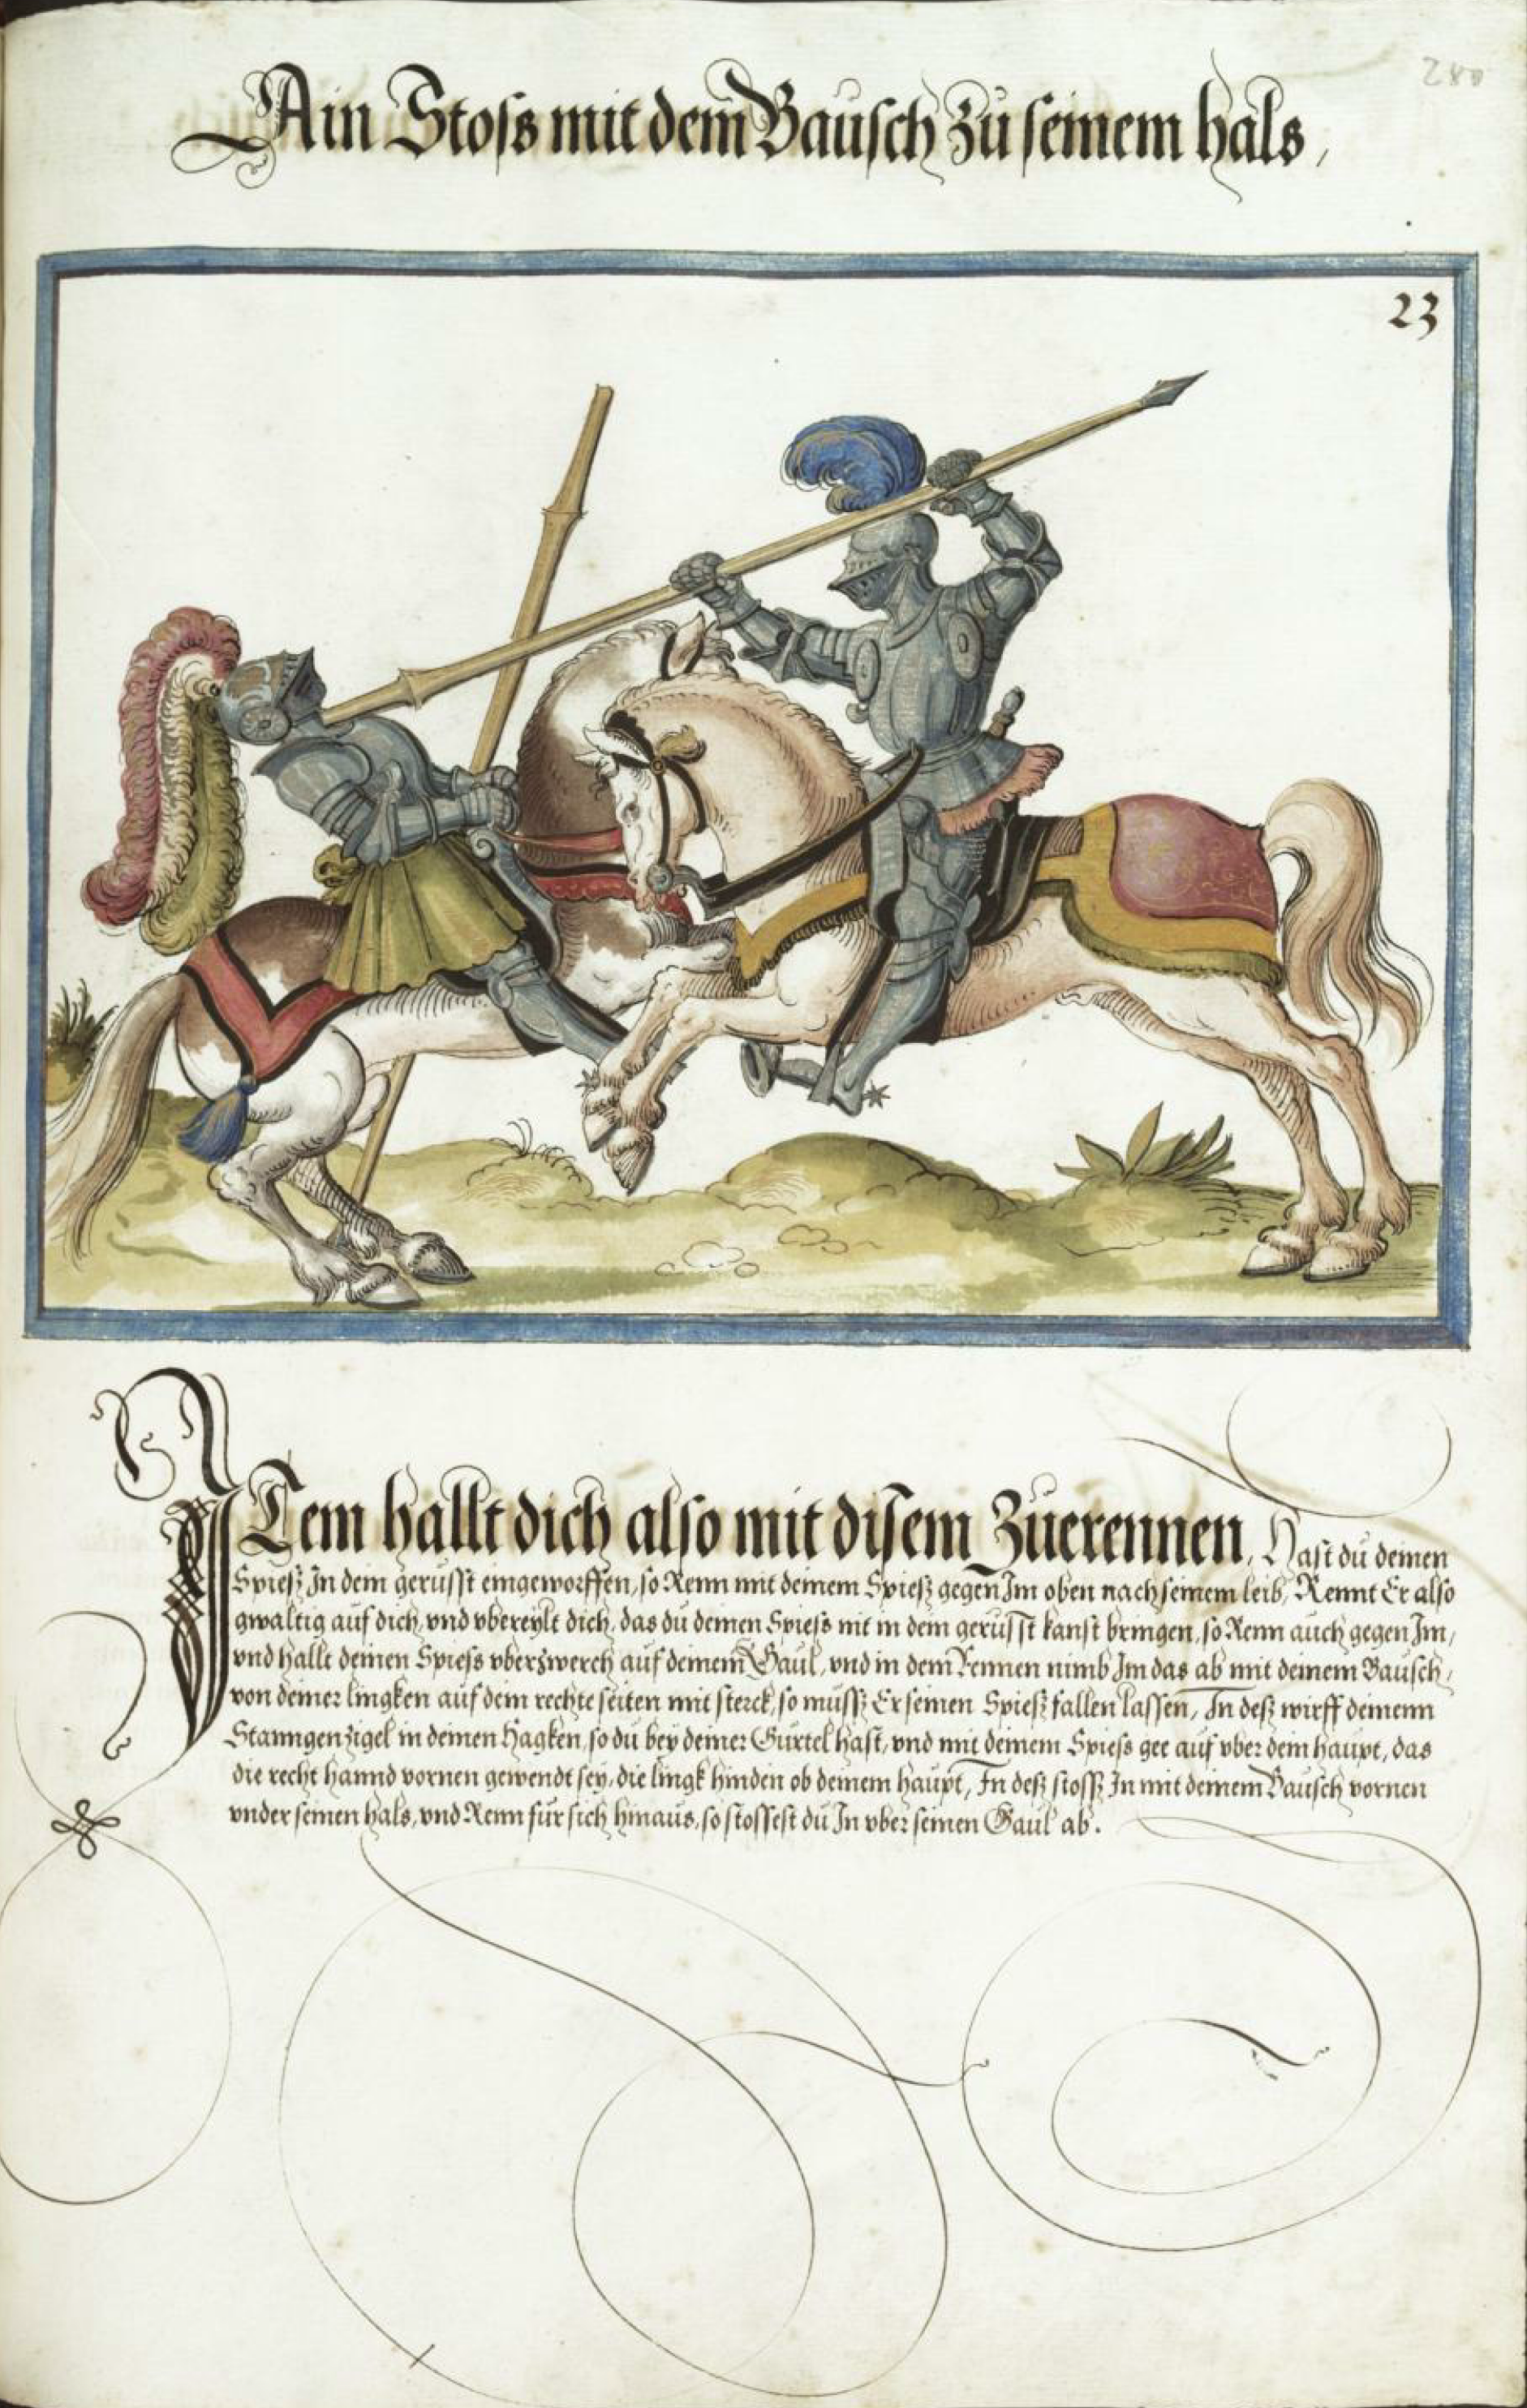 280
Ain Stoss mit dem Bausch zu seinem hals,
23
ITem hallt dich also mit disem Zuerennen, Hast du deinen
Spiesz In dem gerusst eingeworffen, so Renn mit deinem Spiesz gegen Im oben nach seinem leib, Rennt Er also
gwaltig auf dich, vnd vbereylt dich, das du deinen Spiess nit in dem gerusst kanst bringen, so Renn auch gegen Im,
vnd hallt deinen Spiess vberzwerch auf deinem Gaul, vnd in dem Rennen nimb Im das ab mit deinem Bausch,
von deiner lingken auf dein rechte seiten mit sterck, so mussz Er seinen Spiesz fallen lassen, In desz wirff deinenn
Stanngenzigel in deinen Hagken, so du bey deiner Gurtel hast, vnd mit deinem Spiess gee auf vber dein haupt, das
die recht hannd vornen gewendt sey, die lingk hinden ob deinem haupt, In desz stossz In mit deinem Bausch vornen
vnder seinen hals, vnd Renn fur sich hinaus, so stossest du In vber seinen Gaul ab.